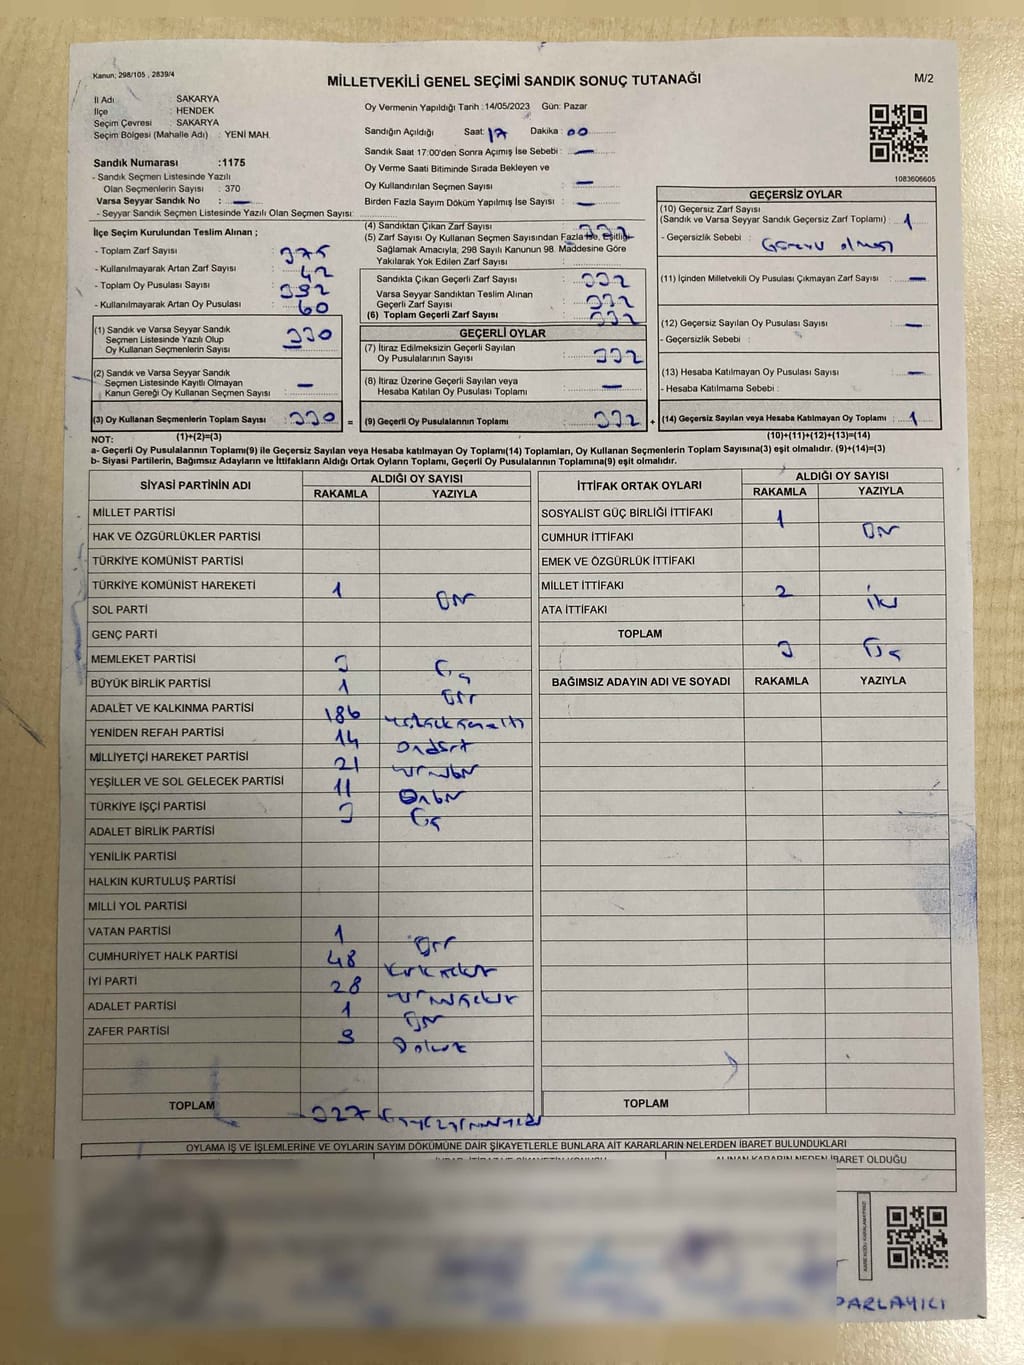 Kanun; 298/105 , 2839/4
MİLLETVEKİLİ GENEL SEÇİMİ SANDIK SONUÇ TUTANAĞI
M/2
İl Adı SAKARYA
İlçe : HENDEK
Seçim Çevresi : SAKARYA
Seçim Bölgesi (Mahalle Adı) : YENİ MAH.
Sandık Numarası :1175
- Sandık Seçmen Listesinde Yazılı
Olan Seçmenlerin Sayısı : 370
Varsa Seyyar Sandık No : —
- Seyyar Sandık Seçmen Listesinde Yazılı Olan Seçmen Sayısı:
Oy Vermenin Yapıldığı Tarih :14/05/2023 Gün: Pazar
Sandığın Açıldığı Saat: 17 Dakika : 00
Sandık Saat 17:00'den Sonra Açımış İse Sebebi : —
Oy Verme Saati Bitiminde Sırada Bekleyen ve
Oy Kullandırılan Seçmen Sayısı : —
Birden Fazla Sayım Döküm Yapılmış İse Sayısı : —
1083606605
İlçe Seçim Kurulundan Teslim Alınan ;
- Toplam Zarf Sayısı : 375
- Kullanılmayarak Artan Zarf Sayısı : 42
- Toplam Oy Pusulası Sayısı : 392
- Kullanılmayarak Artan Oy Pusulası : 60
(1) Sandık ve Varsa Seyyar Sandık
Seçmen Listesinde Yazılı Olup
Oy Kullanan Seçmenlerin Sayısı :
(2) Sandık ve Varsa Seyyar Sandık
Seçmen Listesinde Kayıtlı Olmayan
Kanun Gereği Oy Kullanan Seçmen Sayısı : —
(3) Oy Kullanan Seçmenlerin Toplam Sayısı :
(1)+(2)=(3)
(4) Sandıktan Çıkan Zarf Sayısı :
(5) Zarf Sayısı Oy Kullanan Seçmen Sayısından Fazla İse, Eşitliği
Sağlamak Amacıyla, 298 Sayılı Kanunun 98. Maddesine Göre
Yakılarak Yok Edilen Zarf Sayısı :
Sandıkta Çıkan Geçerli Zarf Sayısı : 332
Varsa Seyyar Sandıktan Teslim Alınan
Geçerli Zarf Sayısı : 332
(6) Toplam Geçerli Zarf Sayısı : 332
GEÇERLİ OYLAR
(7) İtiraz Edilmeksizin Geçerli Sayılan
Oy Pusulalarının Sayısı : 332
(8) İtiraz Üzerine Geçerli Sayılan veya
Hesaba Katılan Oy Pusulası Toplamı : —
= (9) Geçerli Oy Pusulalarının Toplamı : 332
GEÇERSİZ OYLAR
(10) Geçersiz Zarf Sayısı
(Sandık ve Varsa Seyyar Sandık Geçersiz Zarf Toplamı) : 1
- Geçersizlik Sebebi : olması
(11) İçinden Milletvekili Oy Pusulası Çıkmayan Zarf Sayısı : —
(12) Geçersiz Sayılan Oy Pusulası Sayısı : —
- Geçersizlik Sebebi :
(13) Hesaba Katılmayan Oy Pusulası Sayısı : —
- Hesaba Katılmama Sebebi :
+ (14) Geçersiz Sayılan veya Hesaba Katılmayan Oy Toplamı : 1
(10)+(11)+(12)+(13)=(14)
NOT:
a- Geçerli Oy Pusulalarının Toplamı(9) ile Geçersiz Sayılan veya Hesaba katılmayan Oy Toplamı(14) Toplamları, Oy Kullanan Seçmenlerin Toplam Sayısına(3) eşit olmalıdır. (9)+(14)=(3)
b- Siyasi Partilerin, Bağımsız Adayların ve İttifakların Aldığı Ortak Oyların Toplamı, Geçerli Oy Pusulalarının Toplamına(9) eşit olmalıdır.
SİYASİ PARTİNİN ADI ALDIĞI OY SAYISI
RAKAMLA YAZIYLA
MİLLET PARTİSİ
HAK VE ÖZGÜRLÜKLER PARTİSİ
TÜRKİYE KOMÜNİST PARTİSİ
TÜRKİYE KOMÜNİST HAREKETİ 1 Bir
SOL PARTİ
GENÇ PARTİ
MEMLEKET PARTİSİ 3 Üç
BÜYÜK BİRLİK PARTİSİ 1 Bir
ADALET VE KALKINMA PARTİSİ 186 yüzseksenaltı
YENİDEN REFAH PARTİSİ 14 Ondört
MİLLİYETÇİ HAREKET PARTİSİ 21 yirmibir
YEŞİLLER VE SOL GELECEK PARTİSİ 11 Onbir
TÜRKİYE İŞÇİ PARTİSİ 3 Üç
ADALET BİRLİK PARTİSİ
YENİLİK PARTİSİ
HALKIN KURTULUŞ PARTİSİ
MİLLİ YOL PARTİSİ
VATAN PARTİSİ 1 Bir
CUMHURİYET HALK PARTİSİ 48 kırksekiz
İYİ PARTİ 28 yirmisekiz
ADALET PARTİSİ 1 Bir
ZAFER PARTİSİ 9 Dokuz
TOPLAM 327
İTTİFAK ORTAK OYLARI ALDIĞI OY SAYISI
RAKAMLA YAZIYLA
SOSYALİST GÜÇ BİRLİĞİ İTTİFAKI
CUMHUR İTTİFAKI 1 Bir
EMEK VE ÖZGÜRLÜK İTTİFAKI
MİLLET İTTİFAKI 2 iki
ATA İTTİFAKI
TOPLAM 3 Üç
BAĞIMSIZ ADAYIN ADI VE SOYADI RAKAMLA YAZIYLA
TOPLAM
OYLAMA İŞ VE İŞLEMLERİNE VE OYLARIN SAYIM DÖKÜMÜNE DAİR ŞİKAYETLERLE BUNLARA AİT KARARLARIN NELERDEN İBARET BULUNDUKLARI
ALINAN KARARIN NEDEN İBARET OLDUĞU
PARLAYICI